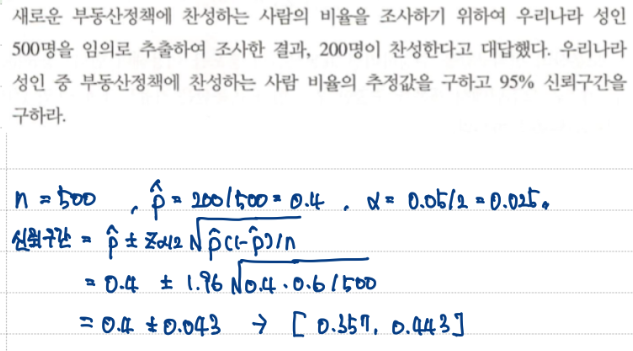 새로운 부동산정책에 찬성하는 사람의 비율을 조사하기 위하여 우리나라 성인
500명을 임의로 추출하여 조사한 결과, 200명이 찬성한다고 대답했다. 우리나라
성인 중 부동산정책에 찬성하는 사람 비율의 추정값을 구하고 95% 신뢰구간을
구하라.
n = 500 , p̂ = 200/500 = 0.4 , α = 0.05/2 = 0.025.
신뢰구간 = p̂ ± Zα/2 √p̂(1-p̂)/n
= 0.4 ± 1.96 √0.4 · 0.6/500
= 0.4 ± 0.043 → [ 0.357, 0.443 ]